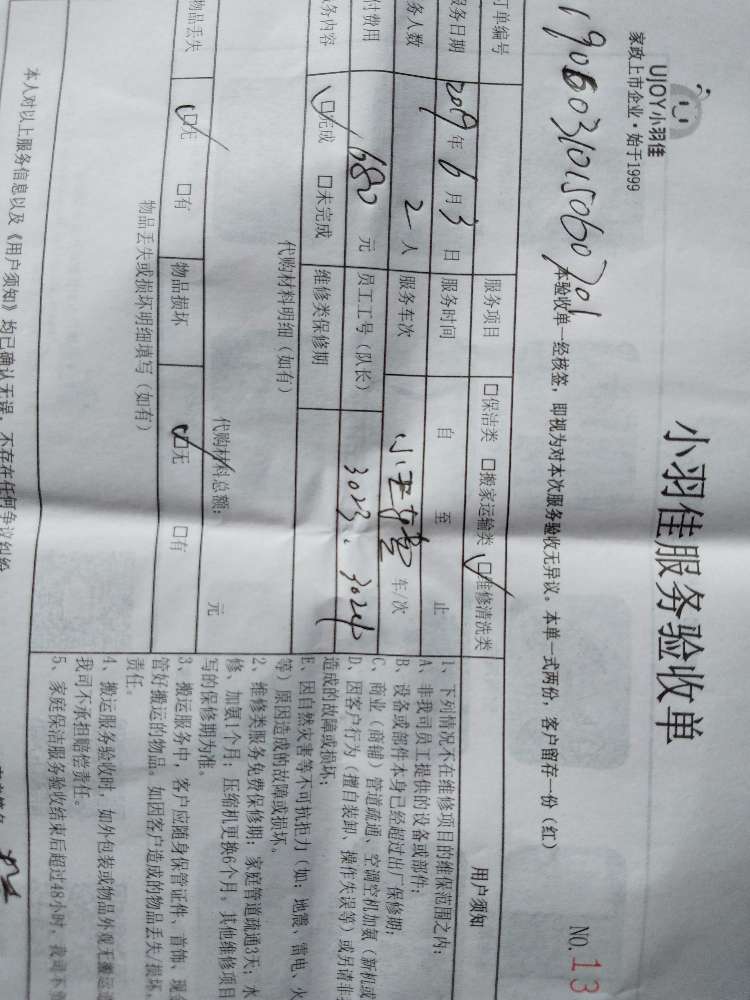 UJOY小羽佳
家政上市企业·始于1999
小羽佳服务验收单
NO.13
本验收单一经核签，即视为对本次服务验收无异议。本单一式两份，客户留存一份（红）
订单编号
服务项目 口保洁类 口搬家运输类 口维修清洗类
服务日期 2019年6月3日 服务时间 自 至 止
务人数 2人 服务车次 车/次
付费用 680元 员工工号（队长） 3023、3024
务内容 口完成 口未完成 维修类保修期
代购材料明细（如有）
代购材料总额： 元
物品丢失 口无 口有 物品损坏 口无 口有
物品丢失或损坏明细填写（如有）
本人对以上服务信息以及《用户须知》均已确认无误，不存在任何争议纠纷
用户须知
1、下列情况不在维修项目的维保范围之内：
A、非我司员工提供的设备或部件；
B、设备或部件本身已经超过出厂保修期；
C、商业（商铺）管道疏通、空调空机加氨（新机或
D、因客户行为（擅自装卸、操作失误等）或另请非
造成的故障或损坏；
E、因自然灾害等不可抗拒力（如：地震、雷电、火
等）原因造成的故障或损坏。
2、维修类服务免费保修期：家庭管道疏通3天；水
修、加氨1个月；压缩机更换6个月。其他维修项目
写的保修期为准。
3、搬运服务中，客户应随身保管证件、首饰、现金
管好搬运的物品。如因客户造成的物品丢失/损坏，
责任。
4、搬运服务验收时，如外包装或物品外观无搬运
我司不承担赔偿责任。
5、家庭保洁服务验收结束后超过48小时，我司不